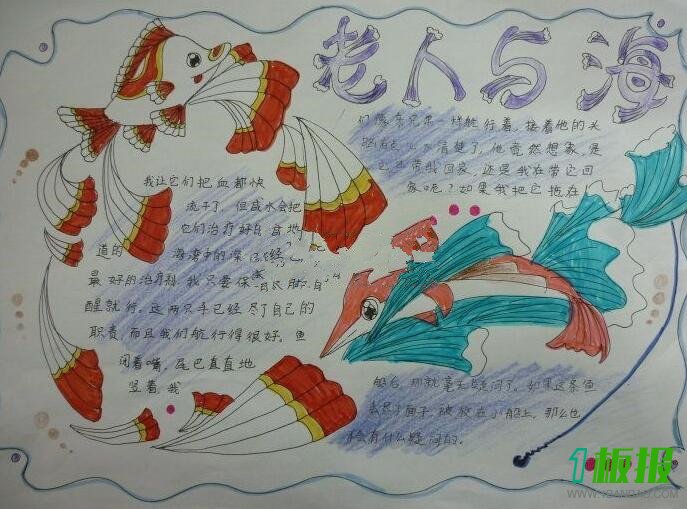 老人与海
我让它们把血都快
流干了，但咸水会把
它们治疗好
道的 海湾中的深
最好的治疗剂，我只要保
醒就行。这两只手已经尽了自己的
职责，而且我们航行得很好。鱼
闭着嘴，尾巴直直地
竖着，我
们像亲兄弟一样航行着，接着他的头
清楚了，他竟然想家，是
它在带我回家，还是我在带它回
家呢？如果我把它拖在
船后，那就毫无疑问了。如果这条鱼
丢尽了面子，被放在小船上，那么也
不会有什么疑问的。
1板报
WWW.1BANBAO.COM